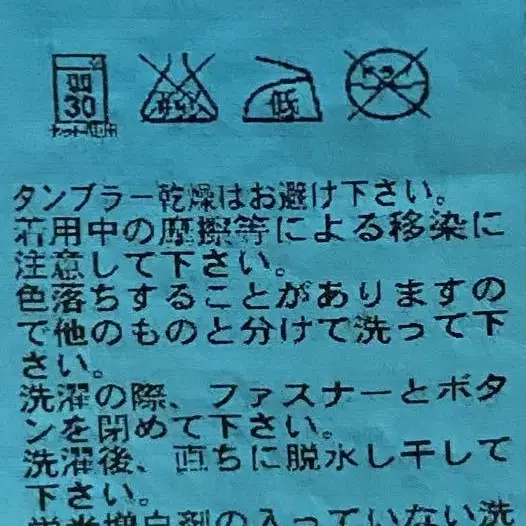 弱
30
ネット使用
エンソ
低
ドライ
タンブラー乾燥はお避け下さい。
着用中の摩擦等による移染に
注意して下さい。
色落ちすることがありますの
で他のものと分けて洗って下
さい。
洗濯の際、ファスナーとボタ
ンを閉めて下さい。
洗濯後、直ちに脱水し干して
下さい。
蛍光増白剤の入っていない洗